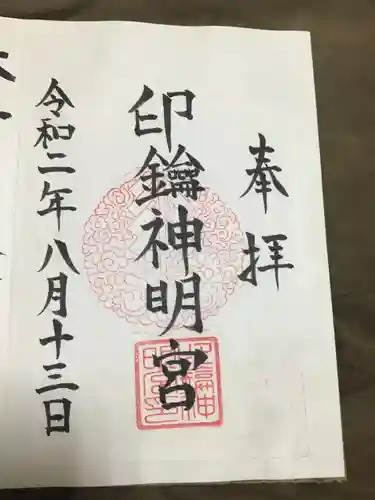 奉拝
印鑰神明宮
令和二年八月十三日